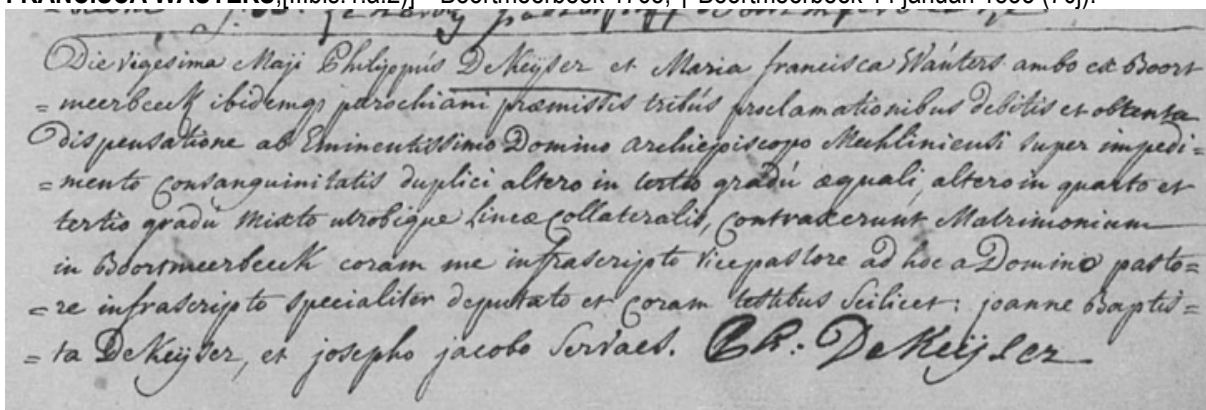 FRANCISCA WAUTERS
Die vigesima Maji Philippús De Keÿser et Maria francisca Waúters ambo ex Boort
= meerbeeck ibidemq; parochiani præmissis tribús proclamationibus debitis et obtenta
Dispensatione ab Eminentissimo Domino archiepiscopo Mechliniensi super impedi=
= mento Consanguinitatis duplici altero in tertio gradú æquali, altero in quarto et
tertio gradú mixto utrobique Lineæ Collateralis, Contraxerunt Matrimonium
in Boortmeerbeeck coram me infrascripto vicepastore ad hoc a Domino pasto=
= re infrascripto specialiter deputato et Coram testibus scilicet: joanne Baptis=
= ta De Keÿser, et josepho jacobo Servaes. Ph: De Keÿser